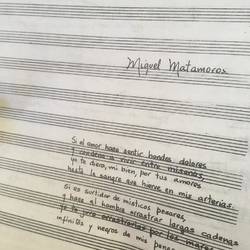 Miguel Matamoros
Si el amor hace sentir hondos dolores
y condena a vivir entre miserias,
yo te diera, mi bien, por tus amores
hasta la sangre que hierve en mis arterias.
Si es surtidor de místicos pesares,
y hace al hombre arrastrar largas cadenas
yo te juro arrastrarlas por los mares
infinitos y negros de mis